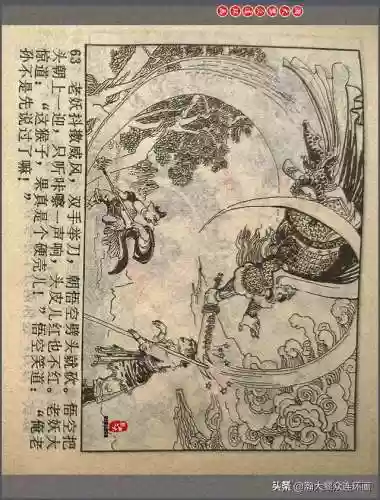 63 老妖抖擞威风,双手举刀,朝悟空劈头就砍。悟空把
头朝上一迎,只听咔嚓一声响,头皮儿红也不红。老妖大
惊道:“这猴子,果真是个硬壳儿!”悟空笑道:“俺老
孙不是先说过了嘛!”
头条 @瀚大聚众连环画